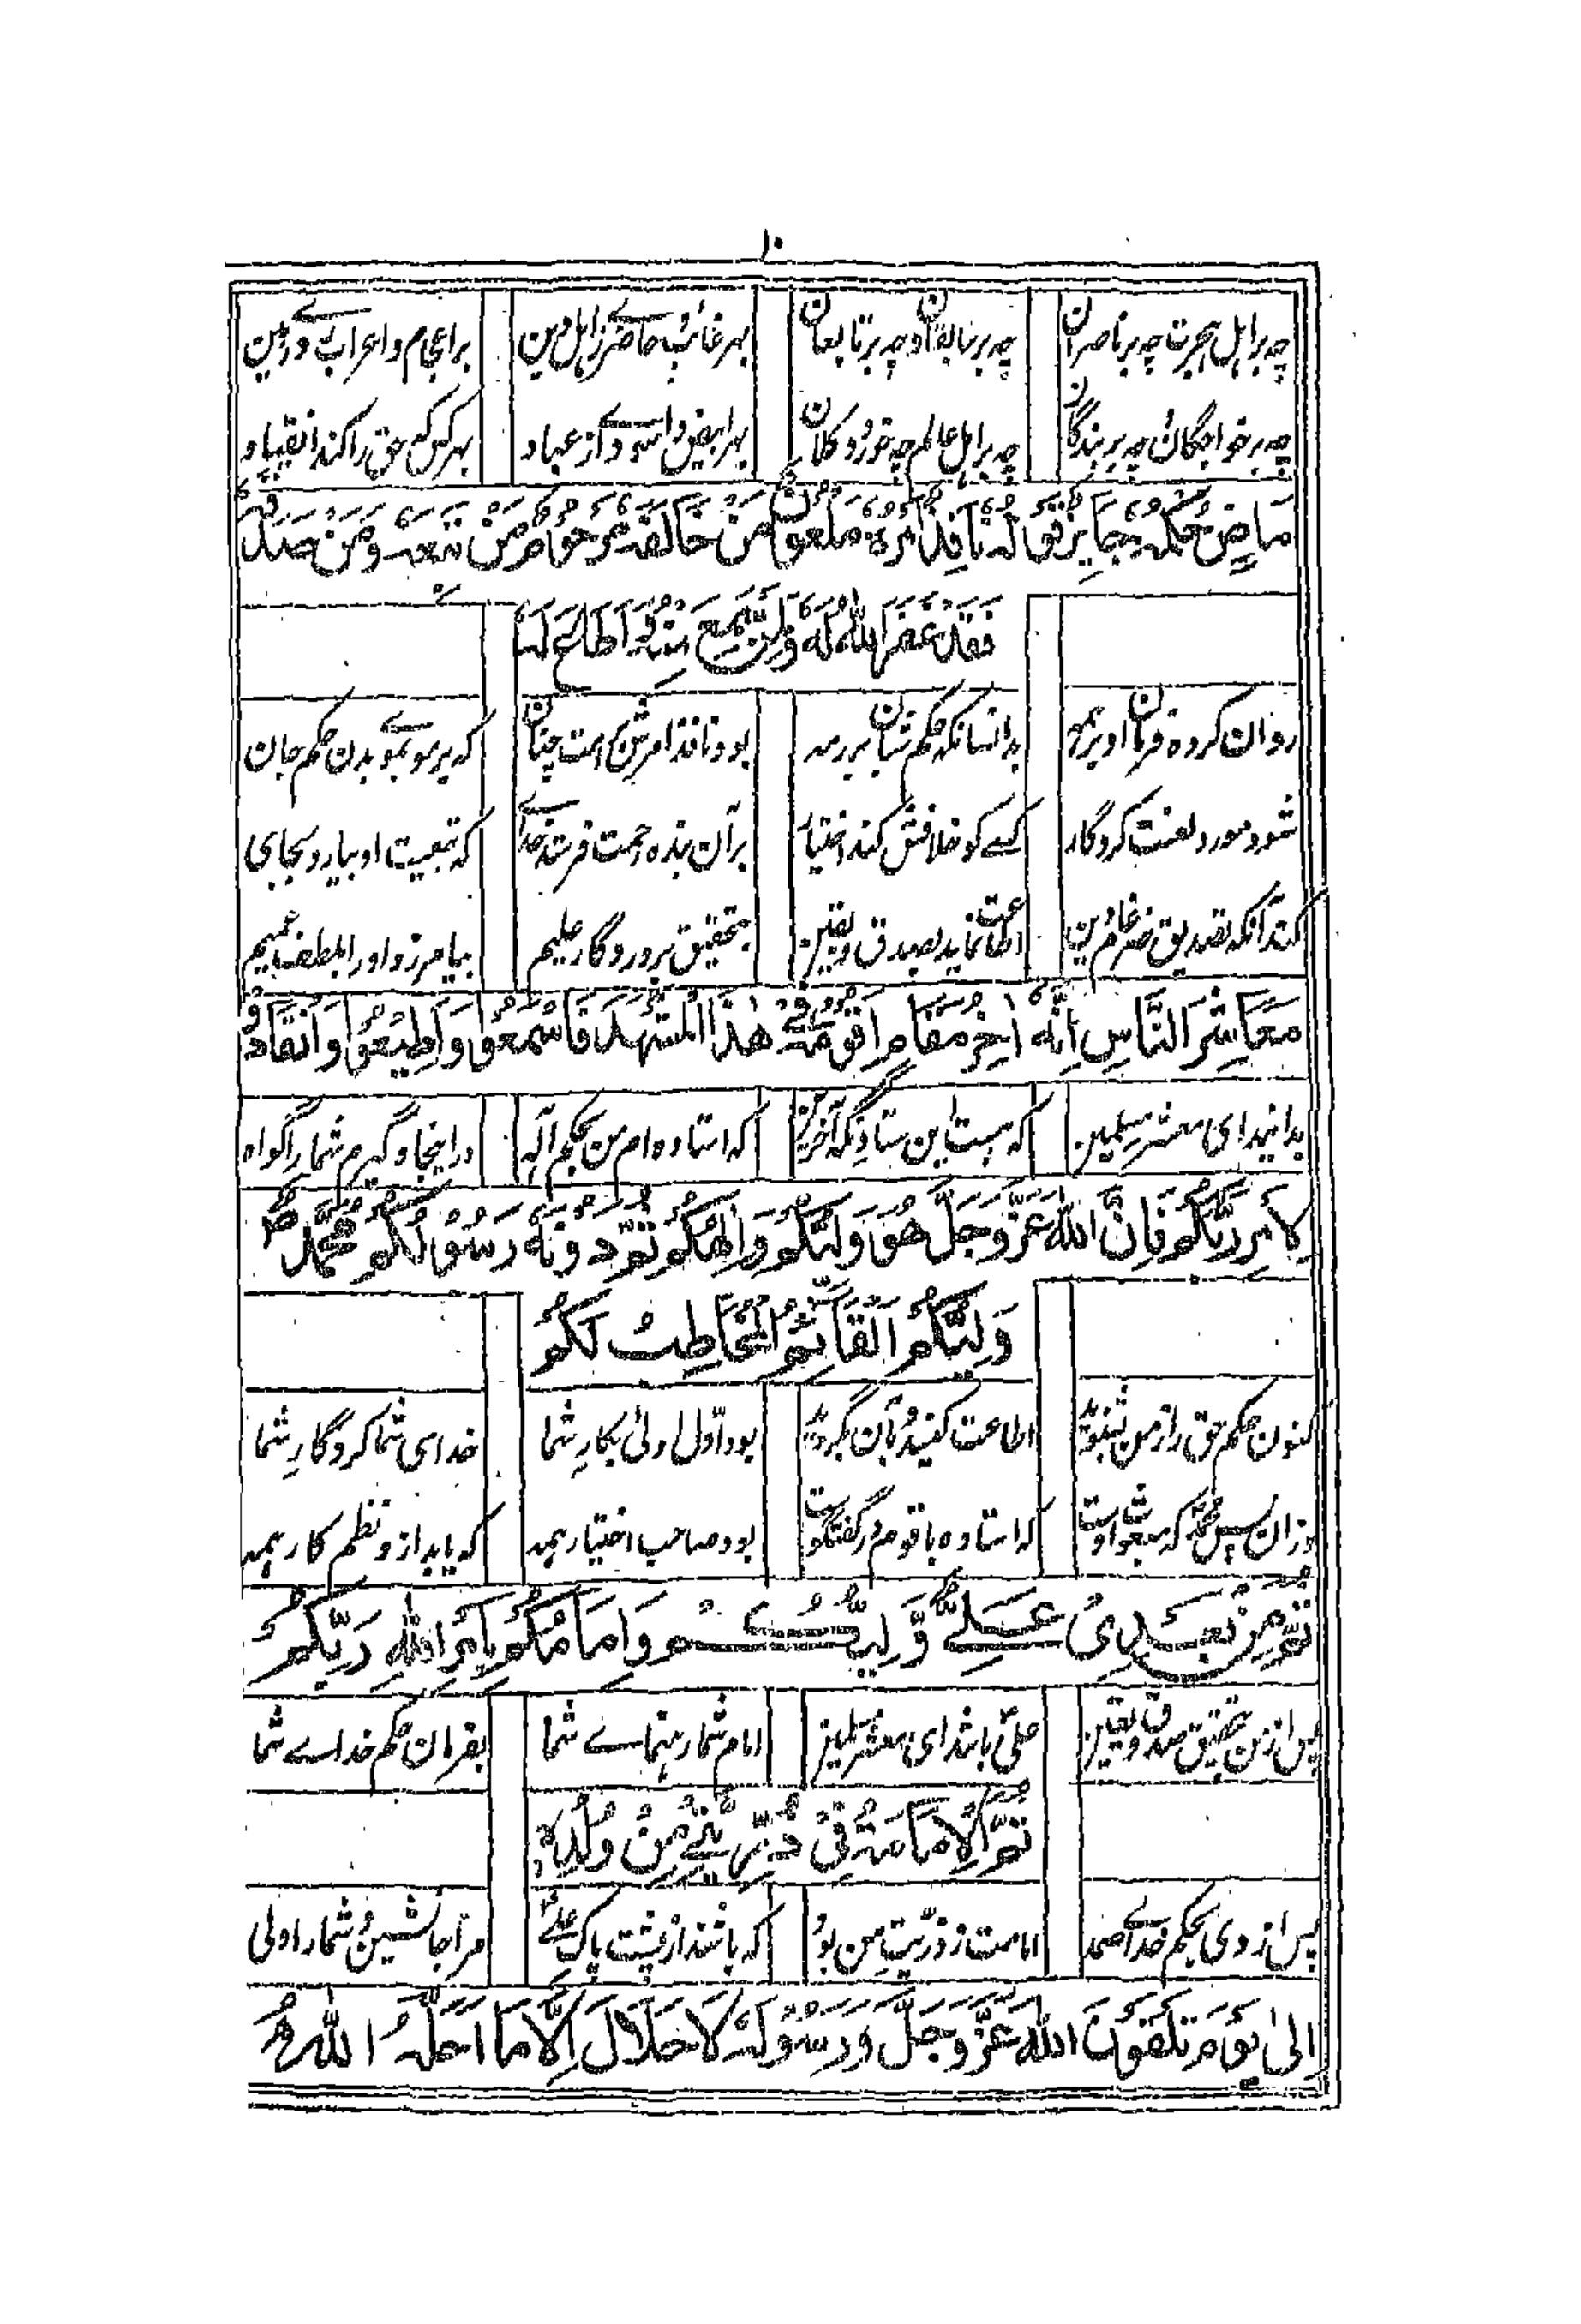 ۱۰
چه بر اهل هجرت چه بر ناصران چه بر سابقان و چه بر تابعان بهر غائب و حاضرے ز اهل دین بر اعجام و اعرابے در زمین
چه بر خواجگان چه بر بندگان چه بر اهل عالم چه خورد و کلان بهر ابیض و اسودے از عباد بهر کس که حق را کند انقیاد
مَاضٍ حُکْمُهُ جَایِزٌ قَوْلُهُ نَافِذٌ اَمْرُهُ مَلْعُونٌ مَنْ خَالَفَهُ مَرْحُومٌ مَنْ تَبِعَهُ وَمَنْ صَدَّقَهُ
فَقَدْ غَفَرَ اللّٰهُ لَهُ وَلِمَنْ سَمِعَ مِنْهُ وَ اَطَاعَ لَهُ
روان کرده فرمان او بر همه بدانسانکه حکم شبان بر رمه بود نافذ امرش بر امت چنان که بر مو بمو بدن حکم جان
شود مورد لعنت کردگار کسے کو خلافش کند اختیار بر آن بنده رحمت فرستد خداے که تبعیت او بیارد بجای
کند آنکه تصدیق ضرغام دین اطاعت نماید بصدق و یقین بتحقیق پروردگار علیم بیامرزد او را بلطف عمیم
مَعَاشِرَ النَّاسِ اِنَّهُ اٰخِرُ مَقَامٍ اَقُوْمُهُ فِیْ هٰذَا الْمَشْهَدِ فَاسْمَعُوْا وَاَطِیْعُوْا وَانْقَادُوْا
بدانید ای معشر مسلمین که هست این ستادنگه آخرین که استاده ام من بحکم آله در اینجا و گیرم شما را گواه
لِاَمْرِ رَبِّکُمْ فَاِنَّ اللّٰهَ عَزَّ وَجَلَّ هُوَ وَلِیُّکُمْ وَاِلٰهُکُمْ ثُمَّ دُوْنَهُ رَسُوْلُکُمْ مُحَمَّدٌ ص
وَلِیُّکُمْ الْقَائِمُ الْمُخَاطِبُ لَکُمْ
کنون حکم حق را ز من بشنوید اطاعت کنید و بآن بگروید بود اول اولی بکار شما خدای شما کردگار شما
وزان سپس محمد که مبعوث اوست که استاده با قوم در گفتگوست بود صاحب اختیار همه که یابد ازو نظم کار همه
ثُمَّ مِنْ بَعْدِیْ عَلِیٌّ وَّلِیُّکُمْ وَاِمَامُکُمْ بِاَمْرِ اللّٰهِ رَبِّکُمْ
پس از من بتحقیق صدق و یقین علی باشد ای معشر مسلمین امام شما رهنماے شما بفرمان حکم خداے شما
ثُمَّ الْاِمَامَةُ فِیْ ذُرِّیَّتِیْ مِنْ وُلْدِهِ
پس از وی بحکم خداے صمد امامت ز ذرّیت من بود که باشند از پشت پاک علی مرا جانشین و شما را ولی
اِلٰی یَوْمِ تَلْقَوْنَ اللّٰهَ عَزَّ وَجَلَّ وَرَسُوْلَهُ لَا حَلَالَ اِلَّا مَا اَحَلَّهُ اللّٰهُ